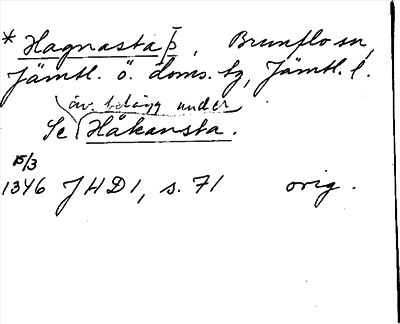 * Hagnastaþ, Brunflo sn,
Jämtl. ö. doms. tg, Jämtl. l.
äv. belägg under
Se Håkansta.
15/3
1346 JHD1, s. 71 orig.